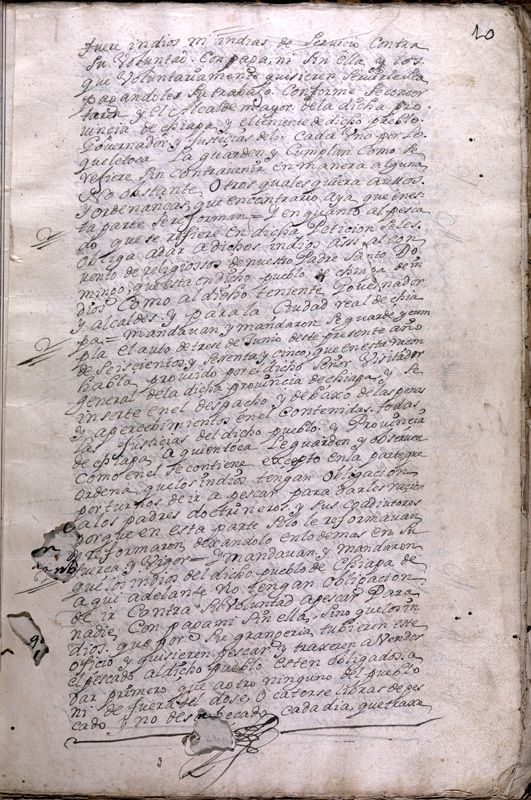 10
fuere indios ni indias de servicio contra
su Voluntad. Con paga, ni sin ella y los
que Voluntariamente quisieren servir sea
pagandoles su trabajo Conforme se concer
taren y El Alcalde mayor de la dicha pro
uincia de chiapa y el teniente de dicho pueblo.
Gouernador y Justicias del: Cada Vno por lo
que le toca La guarden y Cumplan Como se
refiere sin contravenir en manera alguna
No obstante Otros quales quiera autos.
y ordenancas, que en contrario aya que en es
ta parte se reforman = y en quanto al pesca
do que se refiere en dicha Peticion se les
obliga a dar a dichos indios assi al con
uento de religiossos de nuestro Padre Santo Do
mingo que esta en dicho pueblo de chiapa de in
dios Como al dicho teniente Gouernador
y alcaldes y para la Ciudad real de chia
pa = mandauan y mandaron se guarde y cum
pla El auto de trese de Junio deste presente año
de seiscientos y sesenta y cinco, que en esta racon
habla proueido por el dicho señor Visitador
general de la dicha prouincia de chiapa, y se
inserte en el despacho y debaxo de las penas
y apercebimientos en el Contenidas. todas
las Justicias del dicho pueblo y Prouincia
de chiapa a quien toca Le guarden y obseruen
como en el se contiene excepto en la parte que
ordena que los indios tengan obligacion
por turnos de ir a pescar para dar los racion
a los padres doctrineros, y sus Coadiutores
porque en esta parte solo le reformauan
y reformaron dexandolo en lo demas en su
fuerca y Vigor = y mandauan y mandaron
que los indios del dicho pueblo de Chiapa de
aqui adelante No tengan obligacion
de ir Contra su Voluntad a pescar Para
nadie, Con paga ni sin ella, sino que los in
dios. que por su grangeria tubieren este
oficio y quisieren pescar y traxeren a Vender
el pescado al dicho pueblo esten obligados, a
dar primero que a otro ninguno del pueblo
ni de fuera del dose, o catorse libras de pes
cado y no de pecado cada dia, que traxa